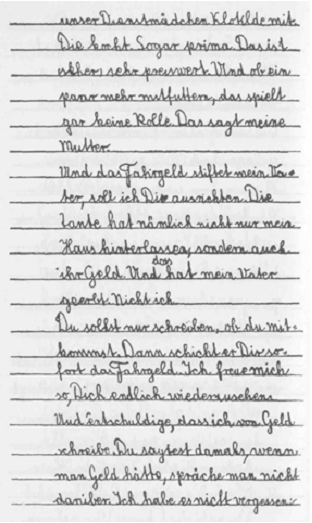 unser Dienstmädchen Klotilde mit.
Die kocht. Sogar prima. Das ist
sehr preiswert. Und ob ein
paar mehr mitfuttern, das spielt
gar keine Rolle. Das sagt meine
Mutter.
Und das Fahrgeld stiftet mein Va-
ter, soll ich Dir ausrichten. Die
Tante hat nämlich nicht nur mein
Haus hinterlassen, sondern auch
ihr Geld. Und das hat mein Vater
geerbt. Nicht ich.
Du sollst nur schreiben, ob du mit-
kommst. Dann schickt er Dir so-
fort das Fahrgeld. Ich freue mich
so, Dich endlich wiederzusehen.
Und entschuldige, dass ich von Geld
schreibe. Du sagtest damals, wenn
man Geld hätte, spräche man nicht
darüber. Ich habe es nicht vergessen.